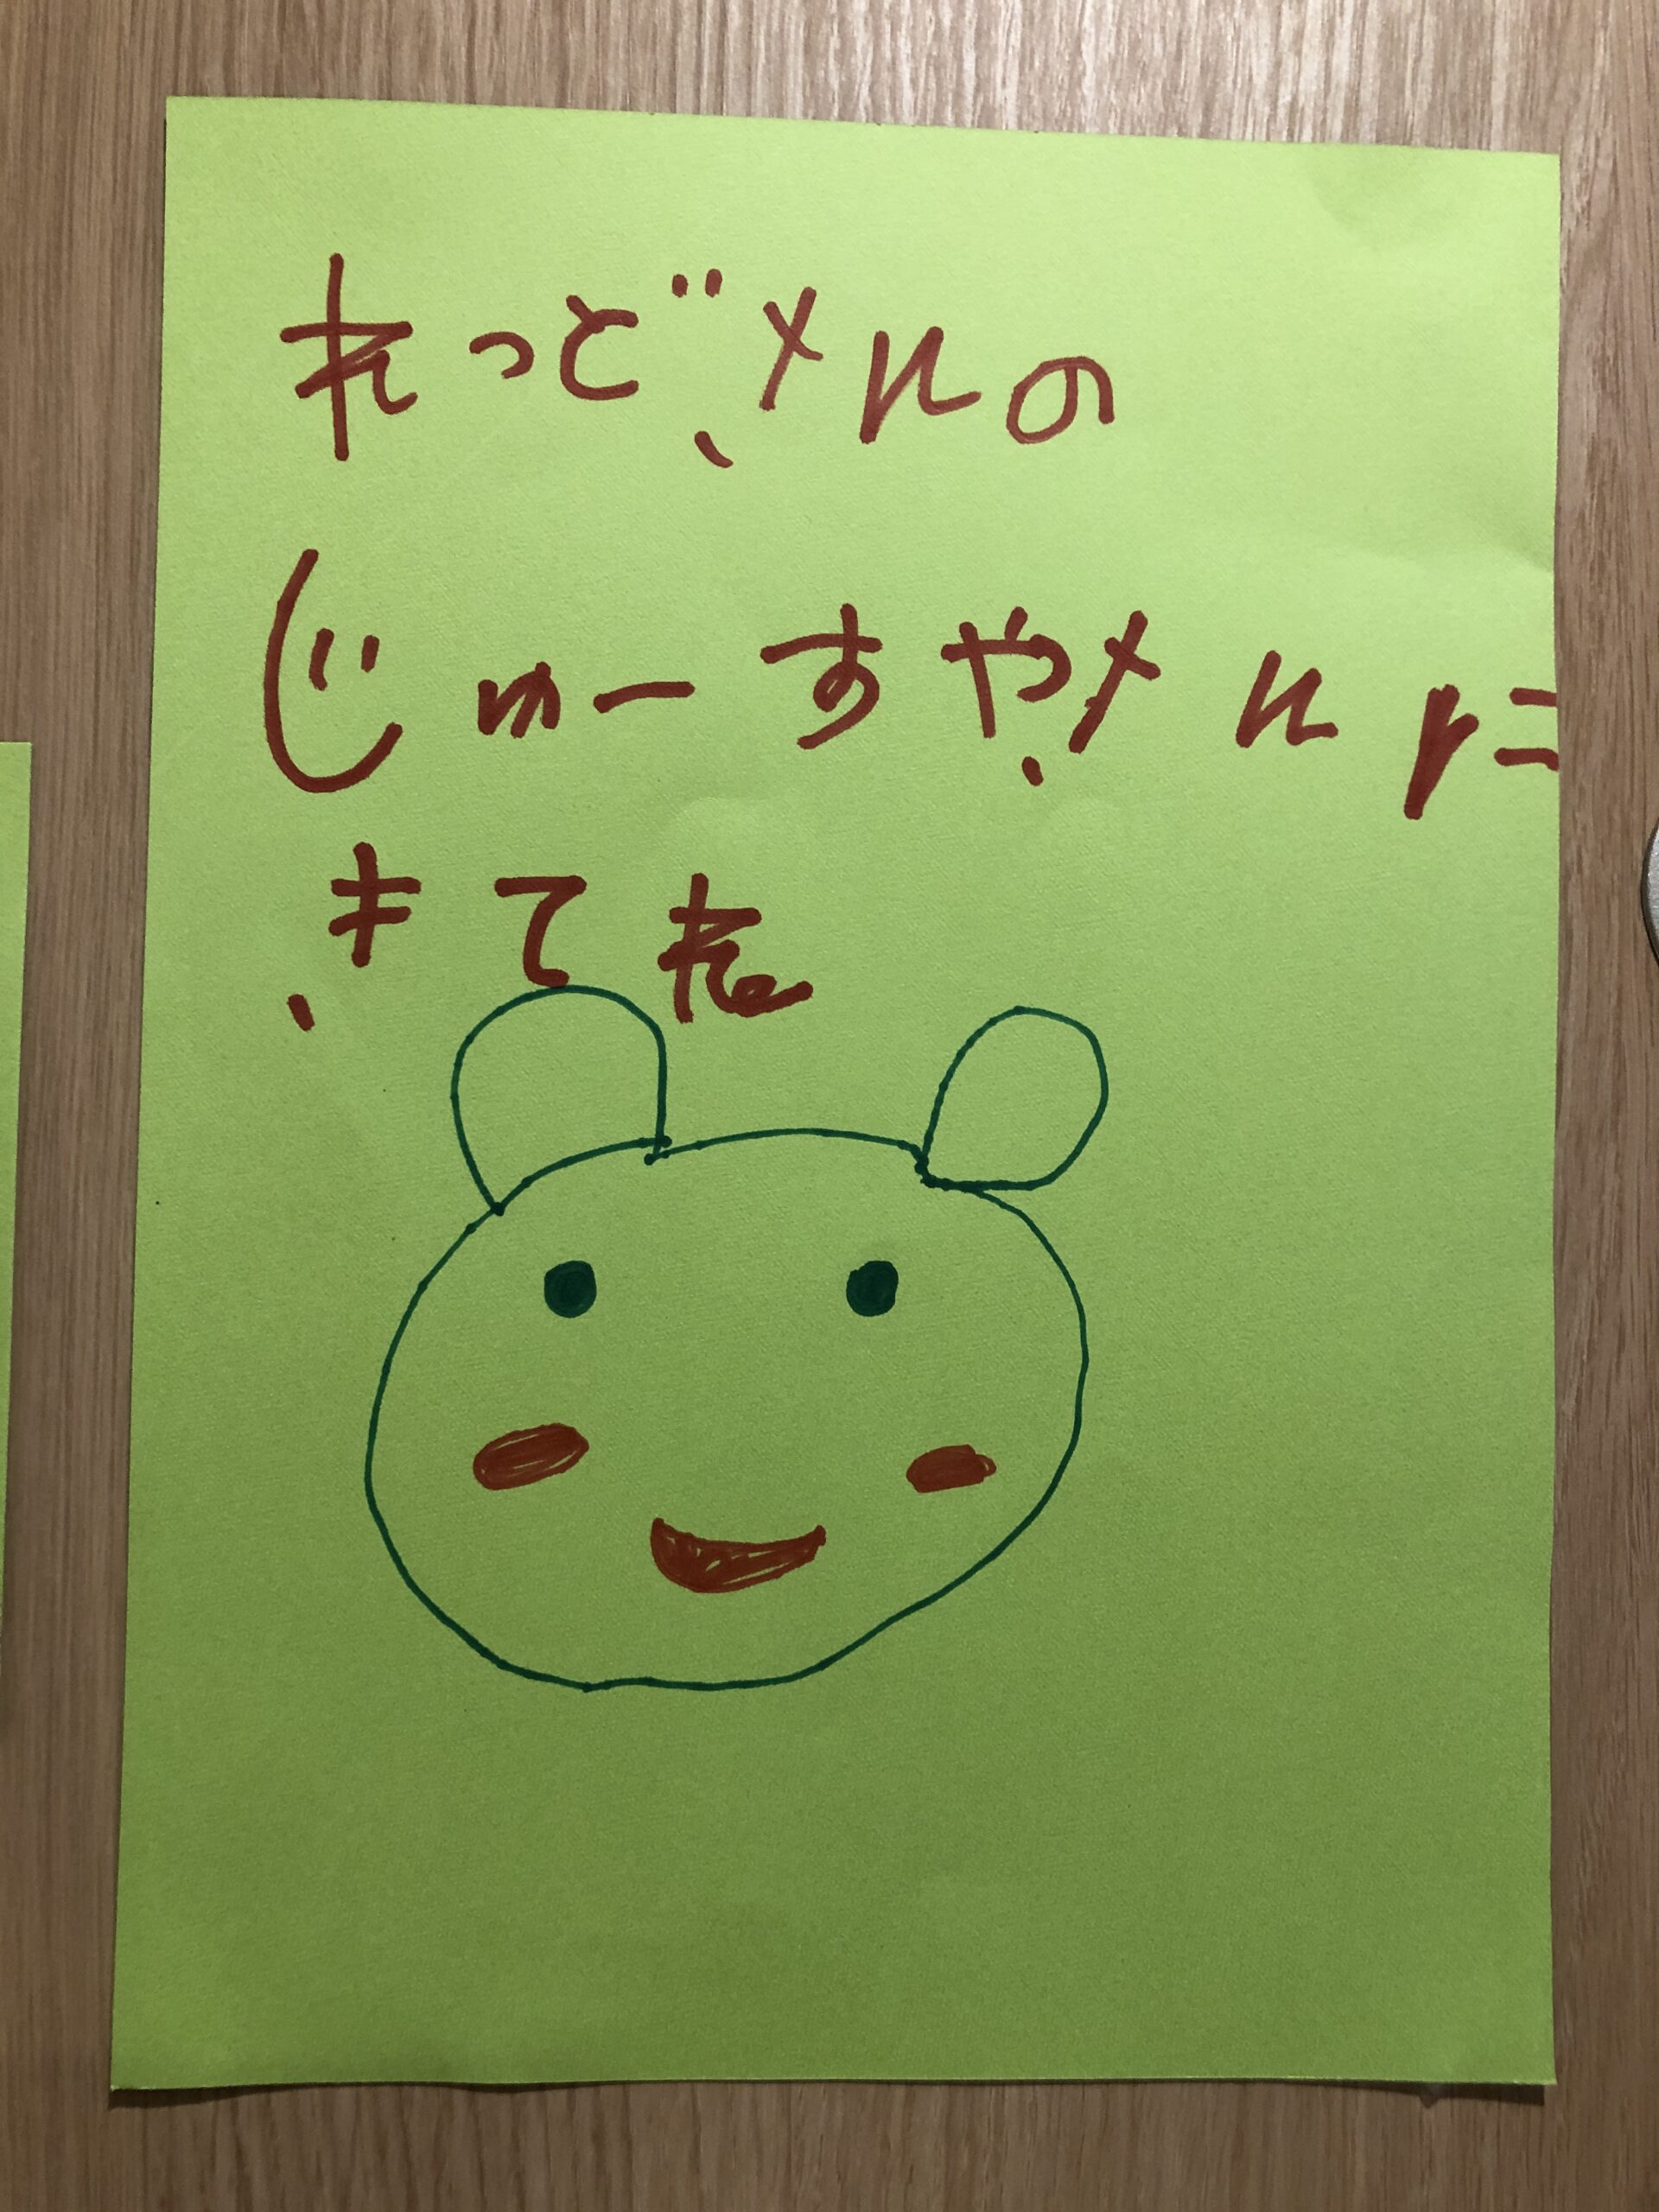 れっどさんの
じゅーすやさんに
きてね